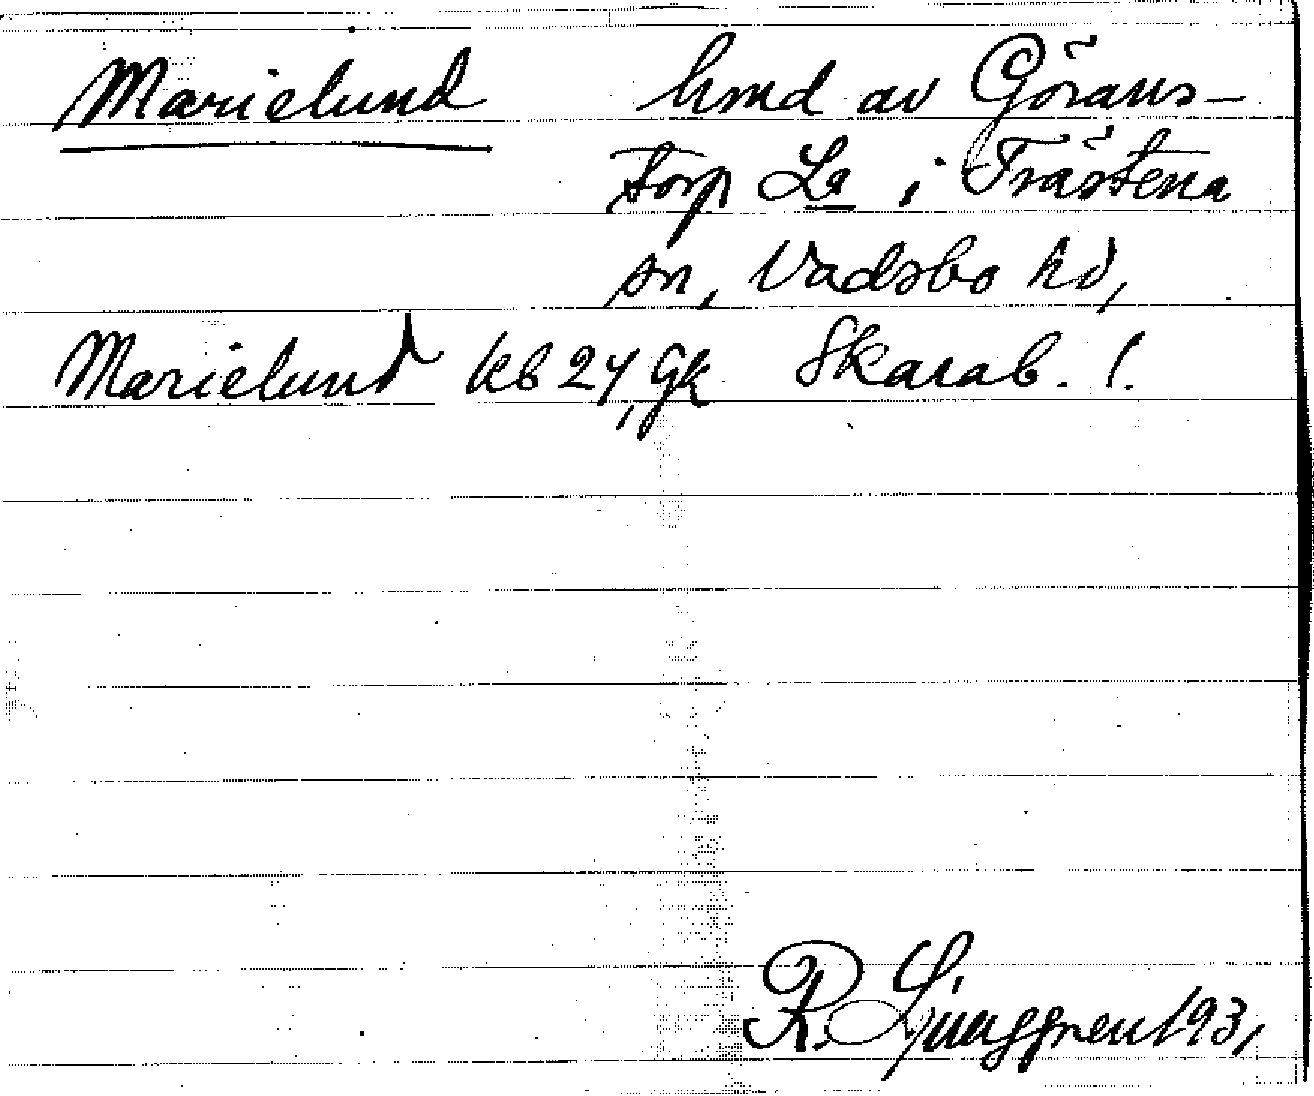 Marielund hmd av Görans-
torp La i Trästena
sn, Vadsbo hd,
Marielund kb 24, Gk Skarab. l.
R. Ljunggren 193,